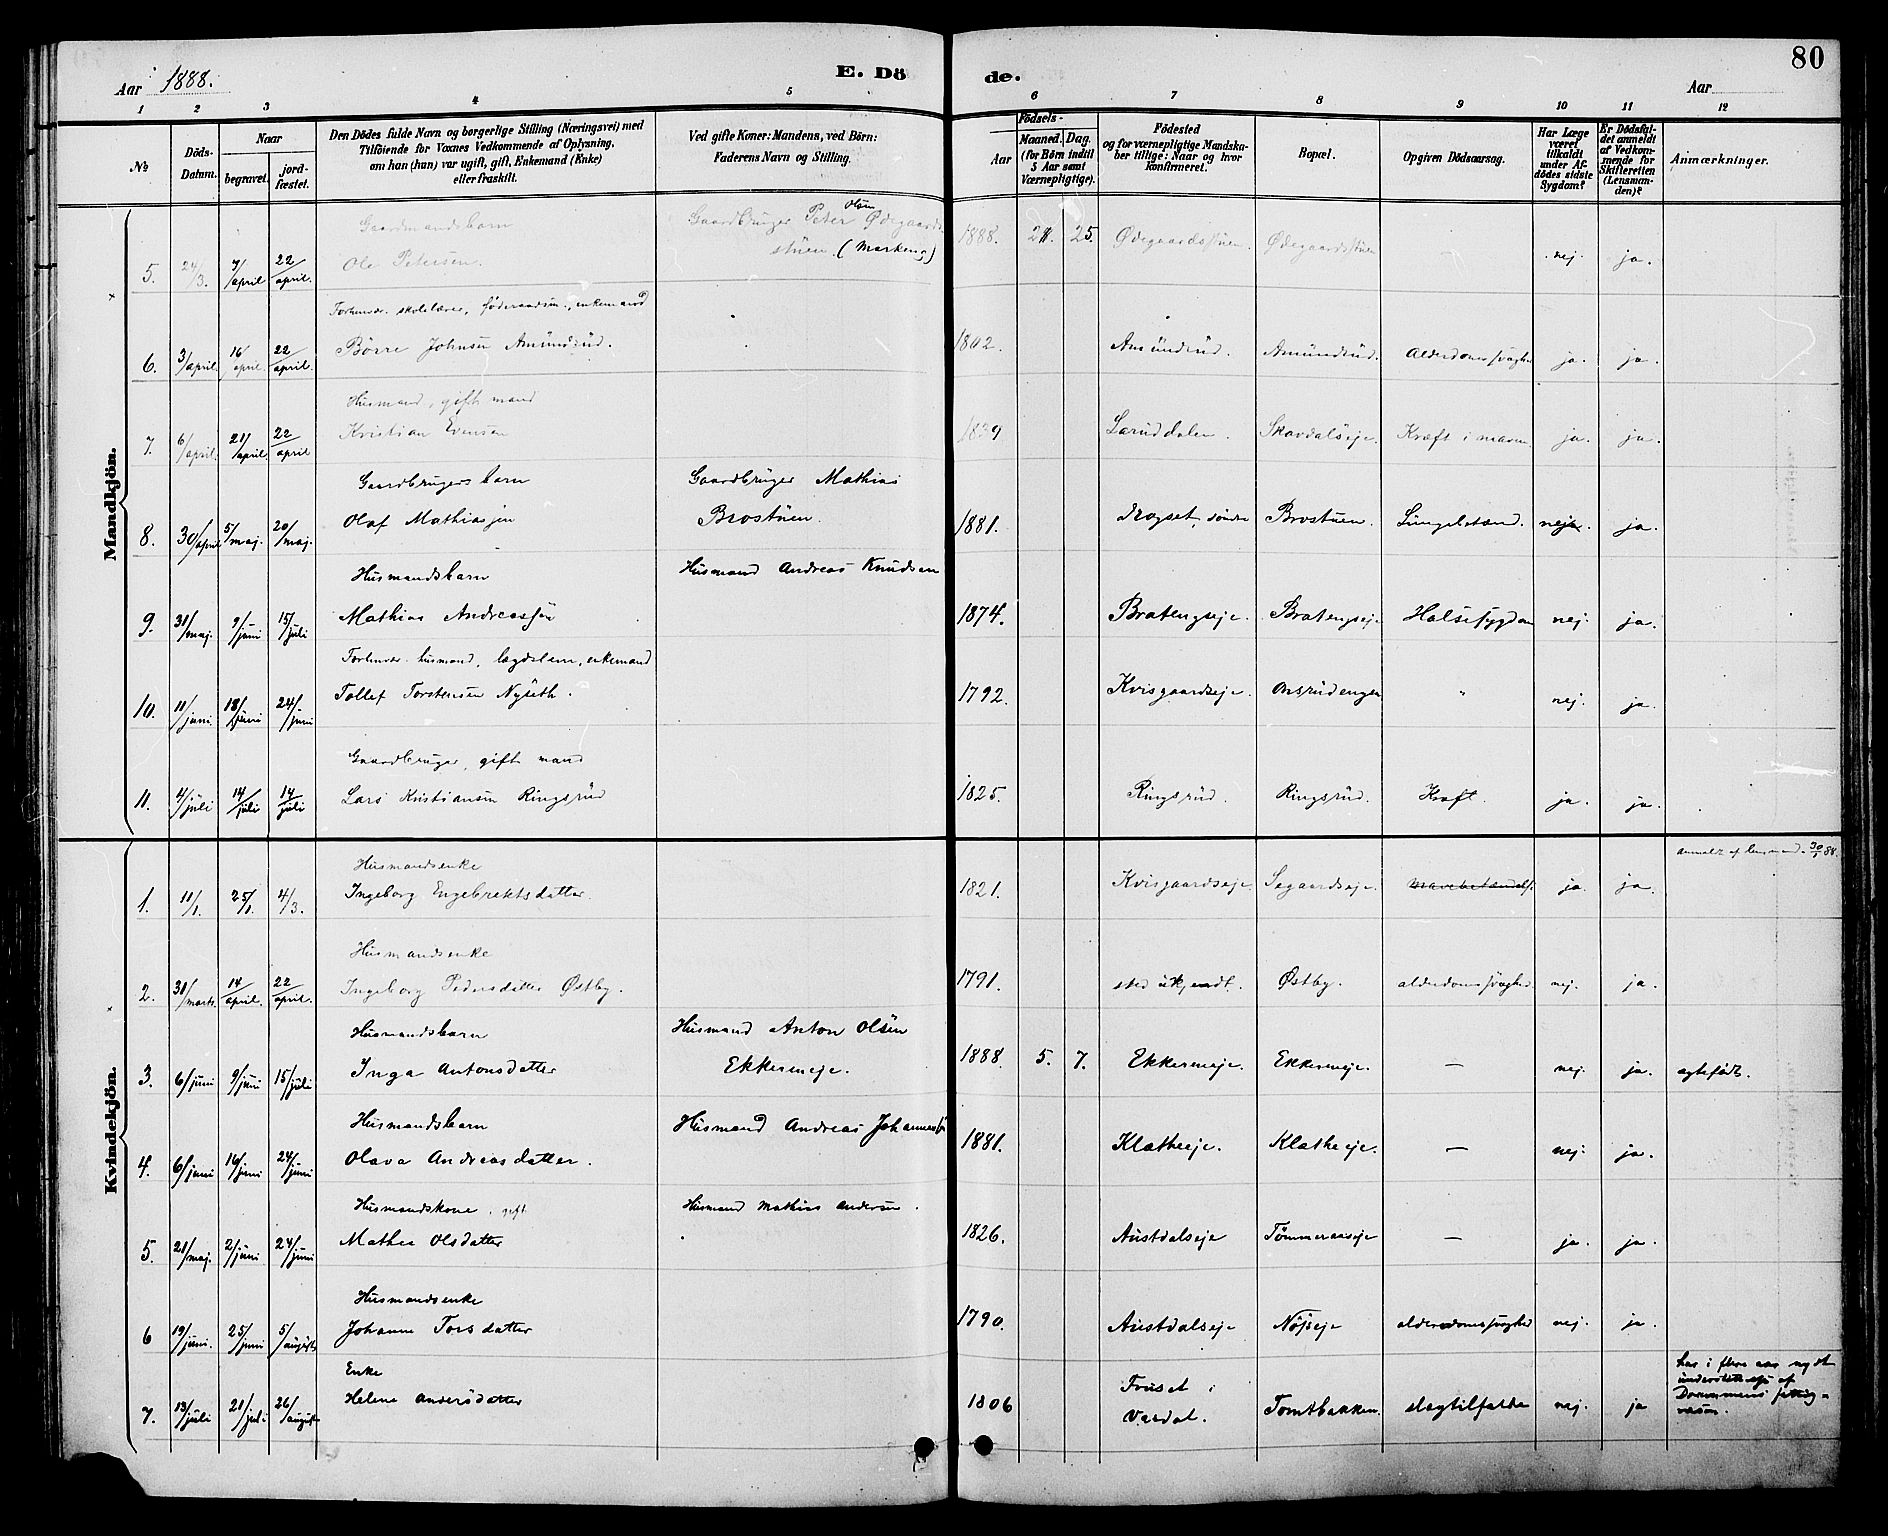 Aar 1888.
E. Dö
de.
80
Aar
1 2 3 4 5 6 7 8 9 10 11 12
No
Döds-Datum.
Naar
begravet.
jord-fæstet.
Den Dödes fulde Navn og borgerlige Stilling (Næringsvei) med
Tilföiende for Voxnes Vedkommende af Oplysning,
om han (hun) var ugift, gift, Enkemand (Enke)
eller fraskilt.
Ved gifte Koner: Mandens, ved Börn:
Faderens Navn og Stilling.
Födsels-
Aar
Maaned. Dag.
(for Börn indtil
5 Aar samt
Værnepligtige).
Födested
og for værnepligtige Mandska-
ber tillige: Naar og hvor
konfirmeret.
Bopæl.
Opgiven Dödsaarsag.
Har Læge
været
tilkaldt
under Af-
dödes sidste
Sygdom?
Er Dödsfal-
det anmeldt
af Vedkom-
mende for
Skifteretten
(Lensman-
den)?
Anmærkninger.
Mandkjön.
Gaardmandsbarn Gaardbruger Peter Olsen Ødegaards-
stuen (Markeng)
5. 24/3. 7/april 22/april. Ole Petersen. 1888. 2 25. Ødegaardsstuen. Ødegaardsstuen nej. ja.
Forhenvær. skolelærer, föderaadsm., enkemand
6. 3/april. 16/april. 22/april. Börre Johnsen Amundrud. 1802. Amundrud. Amundrud. Alderdomssvaghed ja. ja.
Husmand, gift mand
7. 6/april. 21/april. 22/april Kristian Evensen 1839 Laruddalen. Skavdalseje. Kræft i maven ja. ja.
Gaardbrugers barn Gaardbruger Mathias
8. 30/april 5/maj. 20/maj. Olaf Mathiassen Brostuen. 1881. Drogset, söndre Brostuen. Lungebetænd. nej. ja.
Husmandsbarn Husmand Andreas Knudsen
9. 31/maj. 9/juni 15/juli Mathias Andreassen 1874. Bratengseje. Bratengseje Halsesygdom nej. ja.
Forhenvær. husmand, lægdslem, enkemand
10. 11/juni. 18/juni 24/juni Tollef Torstensen Nyseth. 1792. Kvisgaardseje. Onsrudengen " nej. ja.
Gaardbruger, gift mand
11. 4/juli 14/juli 14/juli Lars Kristiansen Ringsrud 1825. Ringsrud. Ringsrud. Kræft. ja. ja.
Kvindekjön.
Husmandsenke 30/1 88.
1. 11/1. 25/1. 4/3. Ingeborg Engebrektsdatter. 1821. Kvisgaardseje. Segaardseje. Mavebetændelse ja. ja.
Husmandsenke
2. 31/marts. 14/april. 22/april. Ingeborg Pedersdatter Østby. 1791. sted ukjendt. Østby. alderdomssvaghed nej. ja.
Husmandsbarn Husmand Anton Olsen
3. 6/juni 9/juni 15/juli Inga Antonsdatter Ekkerneje. 1888. 5. 7. Ekkerneje. Ekkerneje. — nej. ja. ægtefödt.
Husmandsbarn Husmand Andreas Johannes
4. 6/juni 16/juni 24/juni Olava Andreasdatter. 1881. Klætheeje. Klætheeje. — nej. ja.
Husmandskone, gift Husmand Mathias Andersen.
5. 21/maj. 2/juni 24/juni Mathea Olsdatter 1826. Austdalseje Tömmeraaseje — ja. ja.
Husmandsenke
6 19/juni. 25/juni 5/august Johanne Torsdatter 1790. Austdalseje Nöjseje alderdomssvaghed nej. ja.
Enke
7. 13/juli 21/juli 26/august Helene Andersdatter 1806 Fruset i
Vardal. Tomtbakken. slagtilfælde nej. ja
har i flere aar nydt
understöttelse af
Drammens fattig-
væsen.